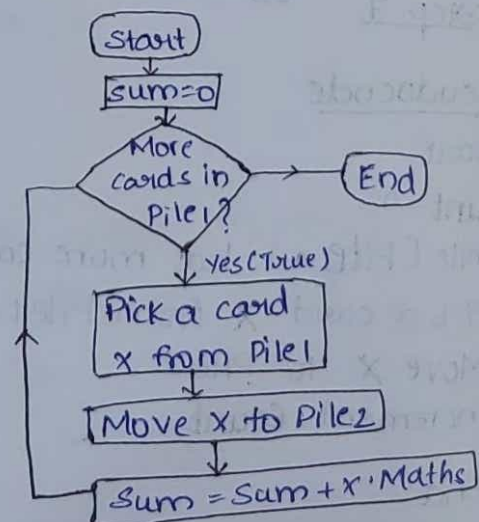 Start
sum=0
More
cards in
Pile1?
End
Yes(True)
Pick a card
x from Pile1
Move x to Pile2
Sum = Sum + x.Maths